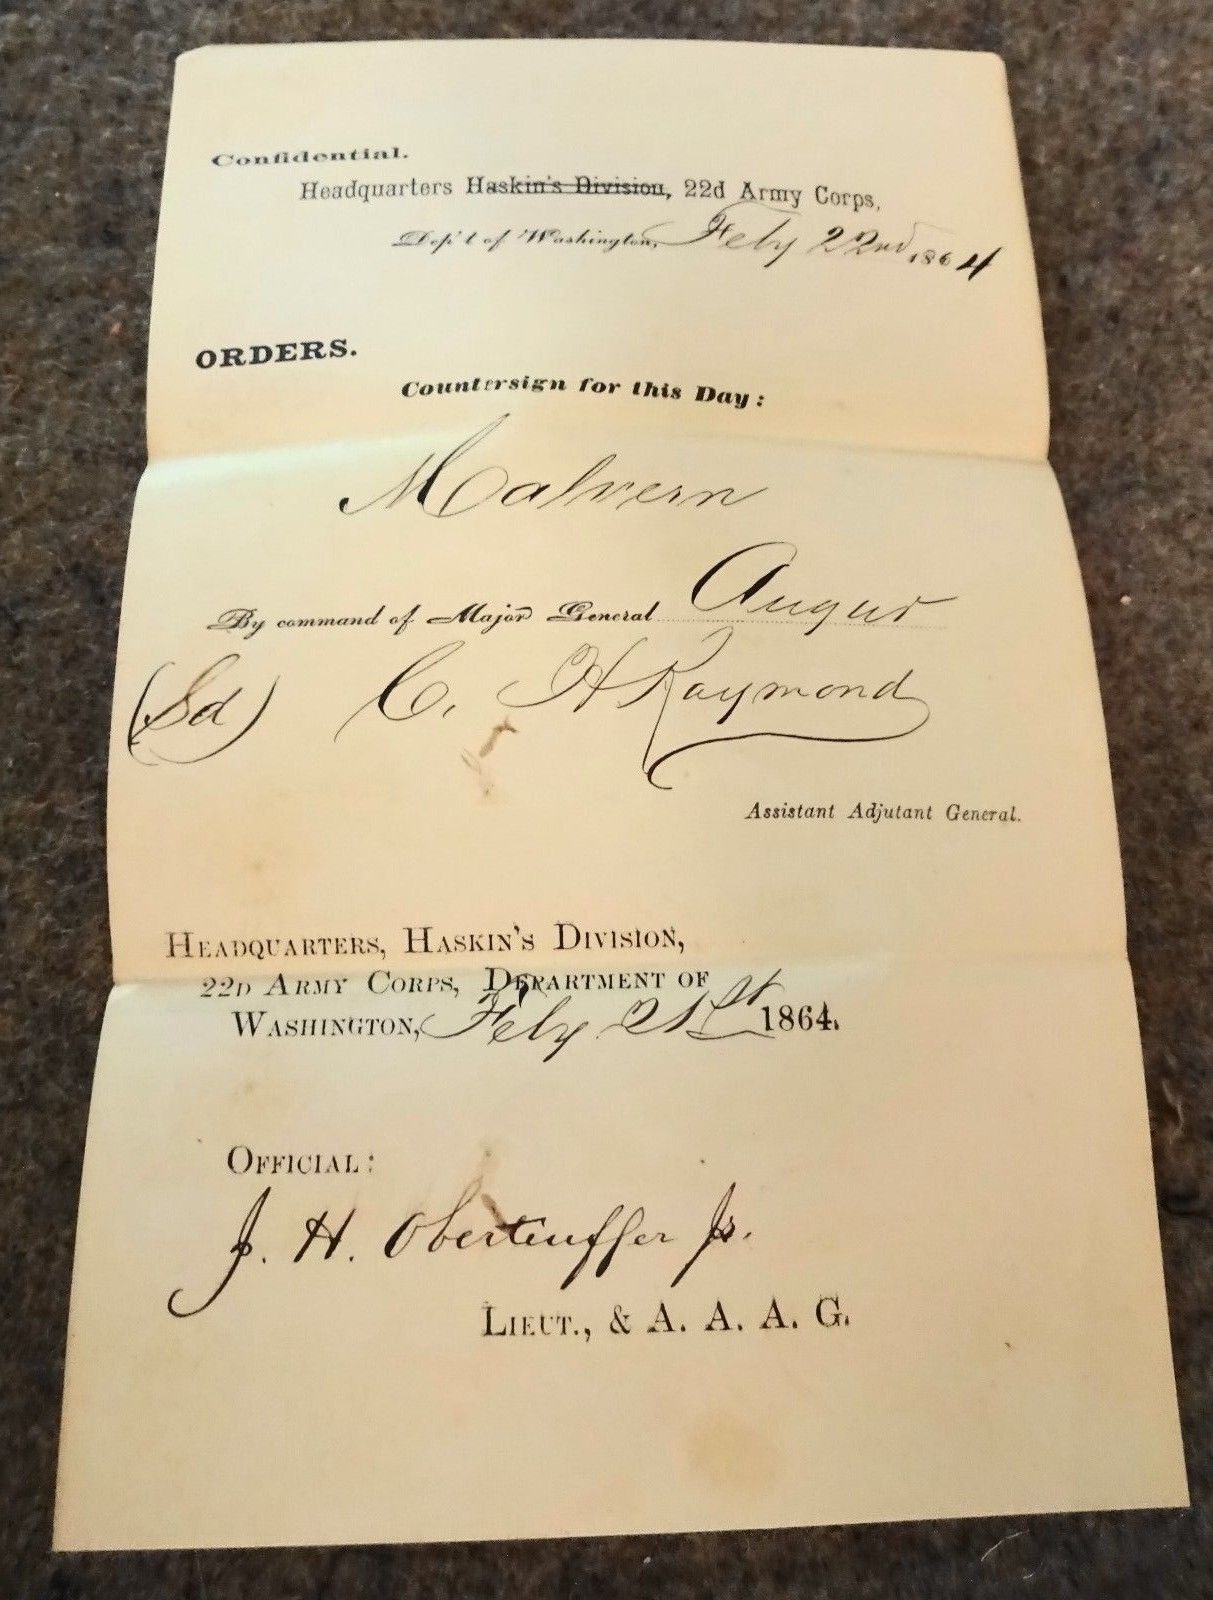 Confidential.
Headquarters Haskin's Division, 22d Army Corps,
Dep't of Washington, Feby 22nd, 1864
ORDERS.
Countersign for this Day:
Malvern
By command of Major General Augur
(Sd) C. H Raymond
Assistant Adjutant General.
HEADQUARTERS, HASKIN'S DIVISION,
22D ARMY CORPS, DEPARTMENT OF
WASHINGTON, Feby 21st 1864.
OFFICIAL:
J. H. Oberteuffer Jr.
LIEUT., & A. A. A. G.